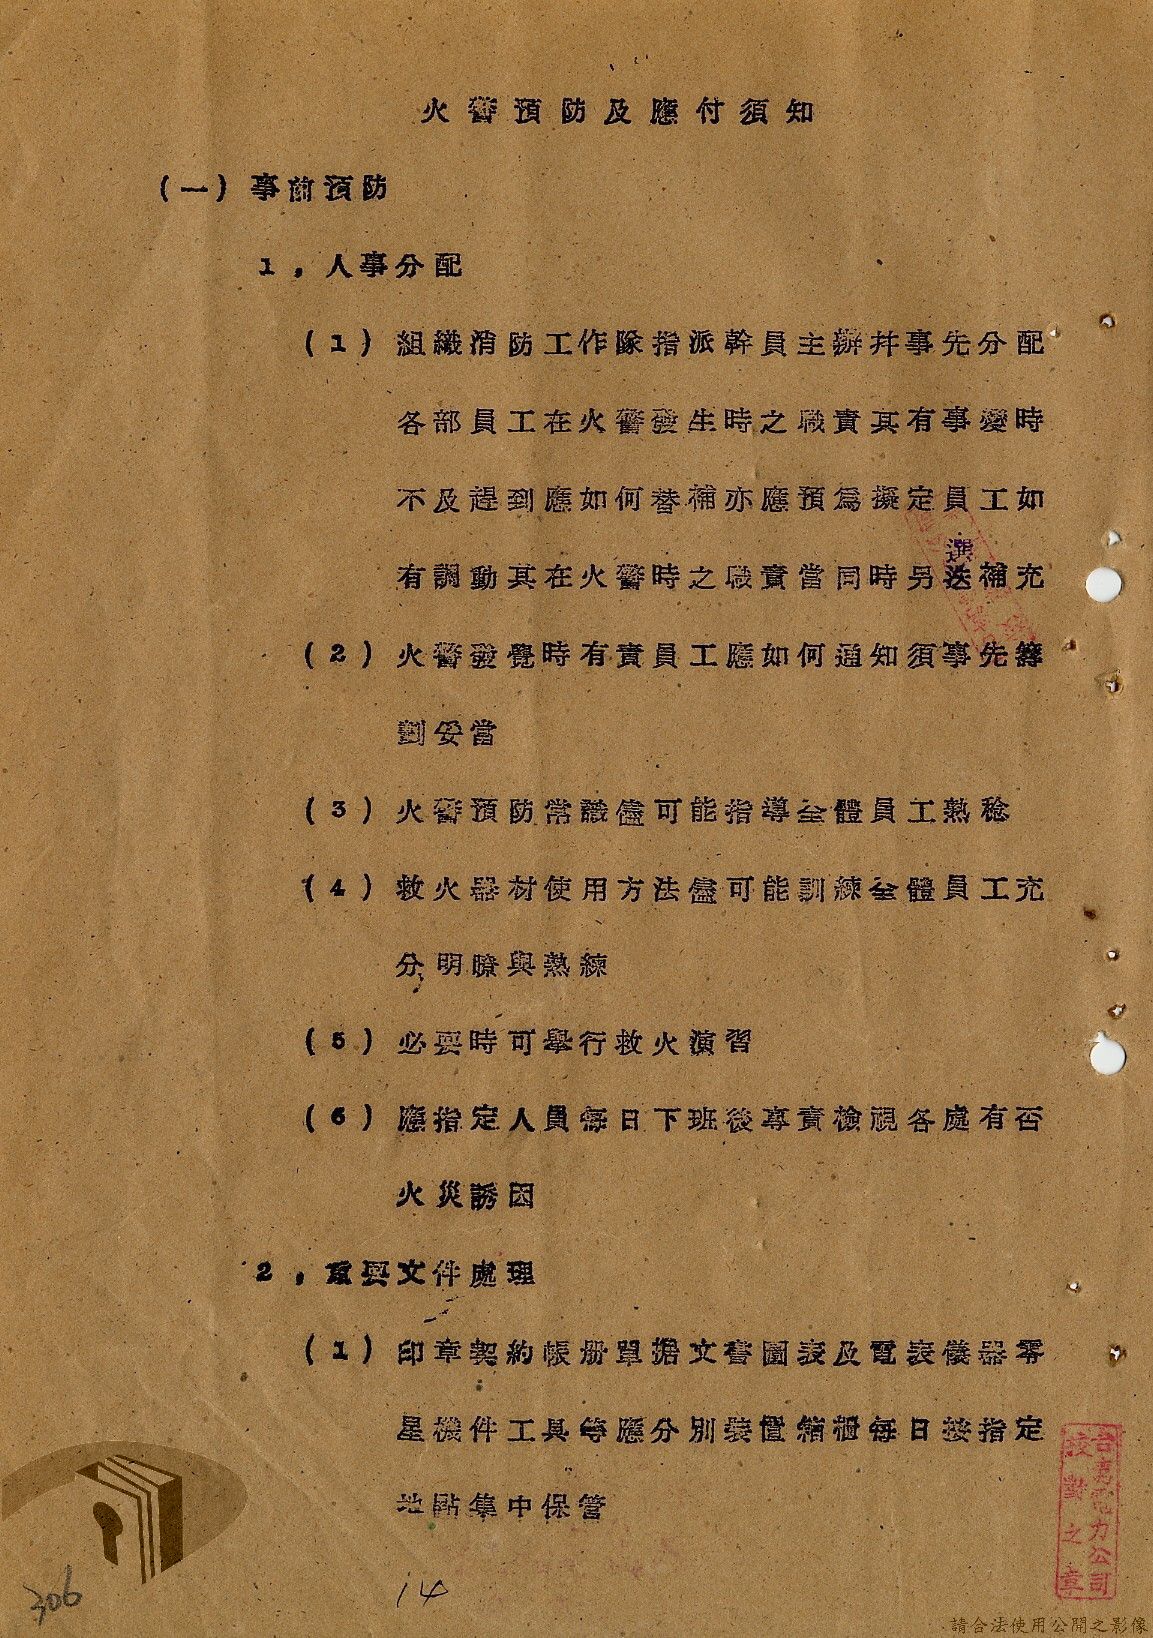 火警預防及應付須知
(一)事前預防
1,人事分配
(1)組織消防工作隊指派幹員主辦并事先分配
各部員工在火警發生時之職責其有事變時
不及趕到應如何替補亦應預為擬定員工如
選
有調動其在火警時之職責當同時另迭補充
(2)火警發覺時有責員工應如何通知須事先籌
劃妥當
(3)火警預防常識儘可能指導全體員工熟稔
(4)救火器材使用方法儘可能訓練全體員工充
分明瞭與熟練
(5)必要時可舉行救火演習
(6)應指定人員每日下班後專責檢視各處有否
火災誘因
2,重要文件處理
(1)印章契約帳册單據文書圖表及電表儀器零
星機件工具等應分別裝置箱櫃每日按指定
地點集中保管
台灣電力公司
校對之章
306
14
請合法使用公開之影像